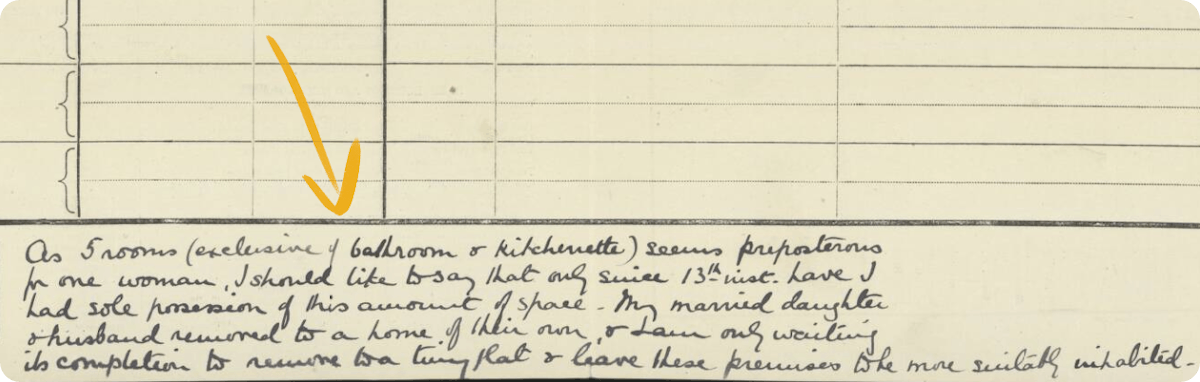 As 5 rooms (exclusive of bathroom & kitchenette) seems preposterous
for one woman, I should like to say that only since 13th inst. have I
had sole possession of this amount of space - My married daughter
& husband removed to a home of their own, & I am only waiting
its completion to remove to a tiny flat & leave these premises to be more suitably inhabited -